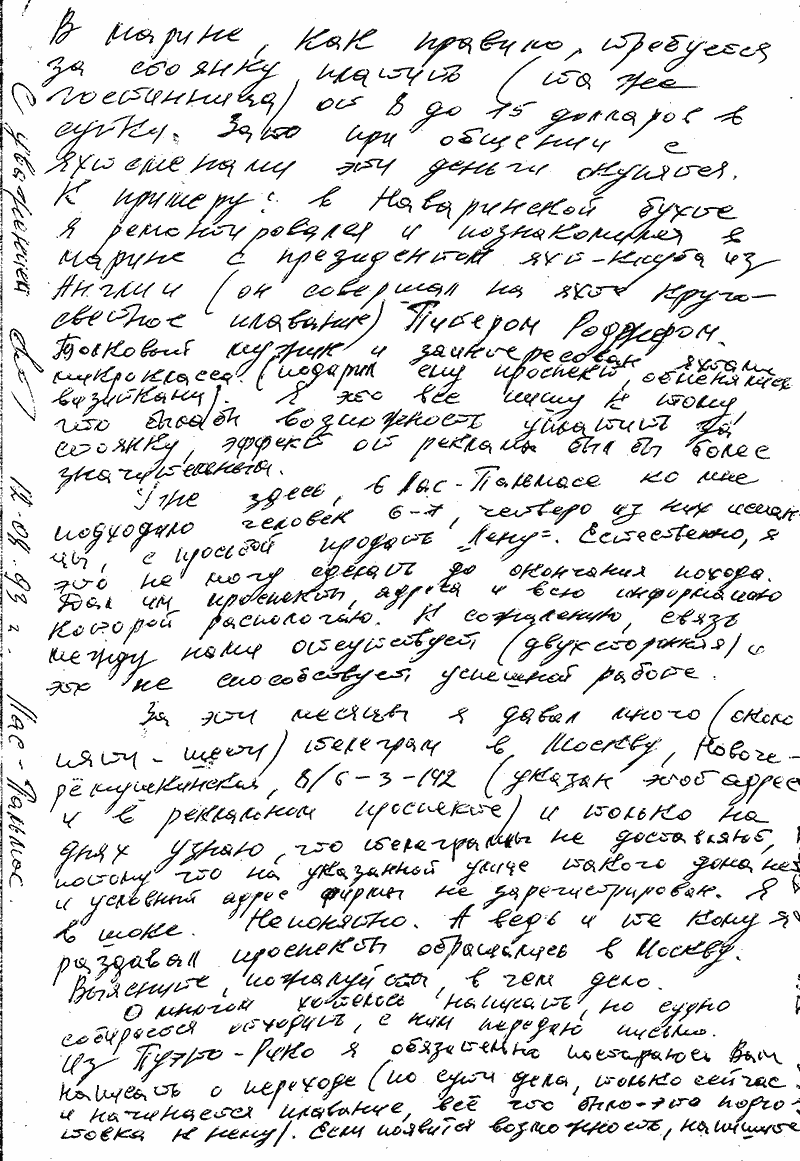 В марине, как правило, требуется
за стоянку платить (та же
гостинница) от 8 до 15 долларов в
сутки. Зато при общении с
яхтсменами эти деньги окупятся.
К примеру: в Наваринской бухте
я ремонтировался и познакомился в
марине с президентом яхт-клуба из
Англии (он совершал на яхте круго-
светное плавание) Питером Роджером.
Толковый мужик и заинтересован яхтами
микрокласса. (подарил ему проспект, обменялись
визитками). Я это все пишу к тому,
что была бы возможность уплатить за
стоянку, эффект от рекламы был бы более
значительный.
Уже здесь, в Лас-Пальмасе ко мне
подходило человек 6-7, четверо из них испан-
цы, с просьбой продать "Лену". Естественно, я
это не могу сделать до окончания похода.
Дал им проспекты, адреса и всю информацию
которой располагаю. К сожалению, связь
между нами отсутствует (двухсторонняя) и
это не способствует успешной работе.
За эти месяцы я давал много (около
пяти - шести) телеграм в Москву, Новоче-
рёмушкинская, 8/6-3-142 (указан этот адрес
и в рекламном проспекте) и только на
днях узнаю, что телеграммы не доставляют,
потому что на указанной улице такого дома нет
и условный адрес фирмы не зарегистрирован. Я
в шоке. Непонятно. А ведь и те кому я
раздавал проспекты обращались в Москву.
Выясните, пожалуйста, в чем дело.
О многом хотелось написать, но судно
собирается отходить, с ним передаю письмо.
Из Пуэрто-Рико я обязательно постараюсь Вам
написать о переходе (по сути дела, только сейчас
и начинается плавание, всё что было-это подго-
товка к нему). Если появится возможность, напишите
С уважением 12.04.93 г. Лас-Пальмас.